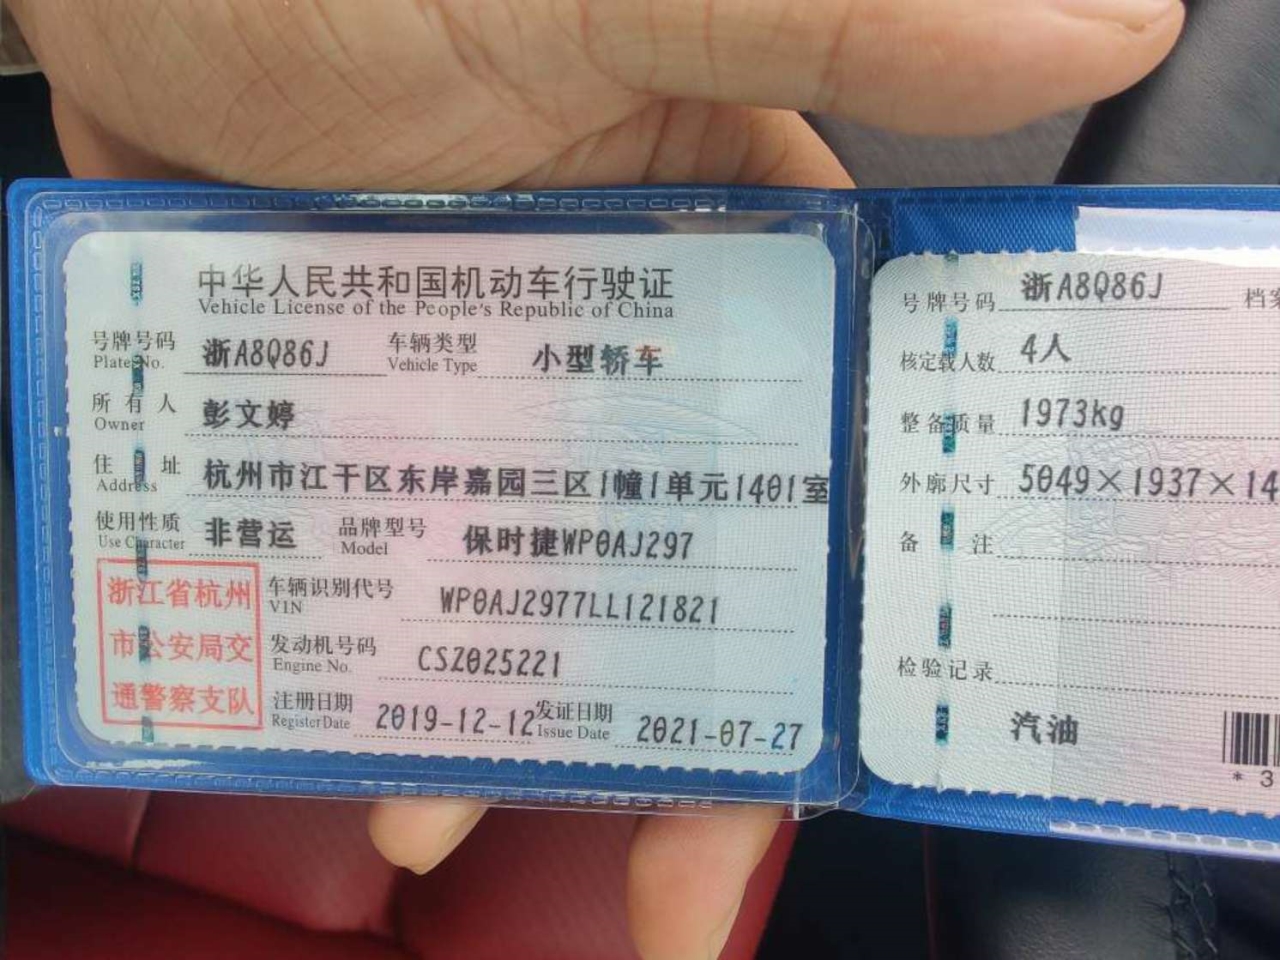 中华人民共和国机动车行驶证
Vehicle License of the People's Republic of China
号牌号码 浙A8Q86J 车辆类型 小型轿车
Plate No. Vehicle Type
所有人 彭文婷
Owner
住址 杭州市江干区东岸嘉园三区1幢1单元1401室
Address
使用性质 非营运 品牌型号 保时捷WP0AJ297
Use Character Model
浙江省杭州
市公安局交
通警察支队
车辆识别代号 WP0AJ2977LL121821
VIN
发动机号码 CSZ025221
Engine No.
注册日期 2019-12-12 发证日期 2021-07-27
Register Date Issue Date
号牌号码 浙A8Q86J 档
核定载人数 4人
整备质量 1973kg
外廓尺寸 5049×1937×14
备注
检验记录
汽油
*3